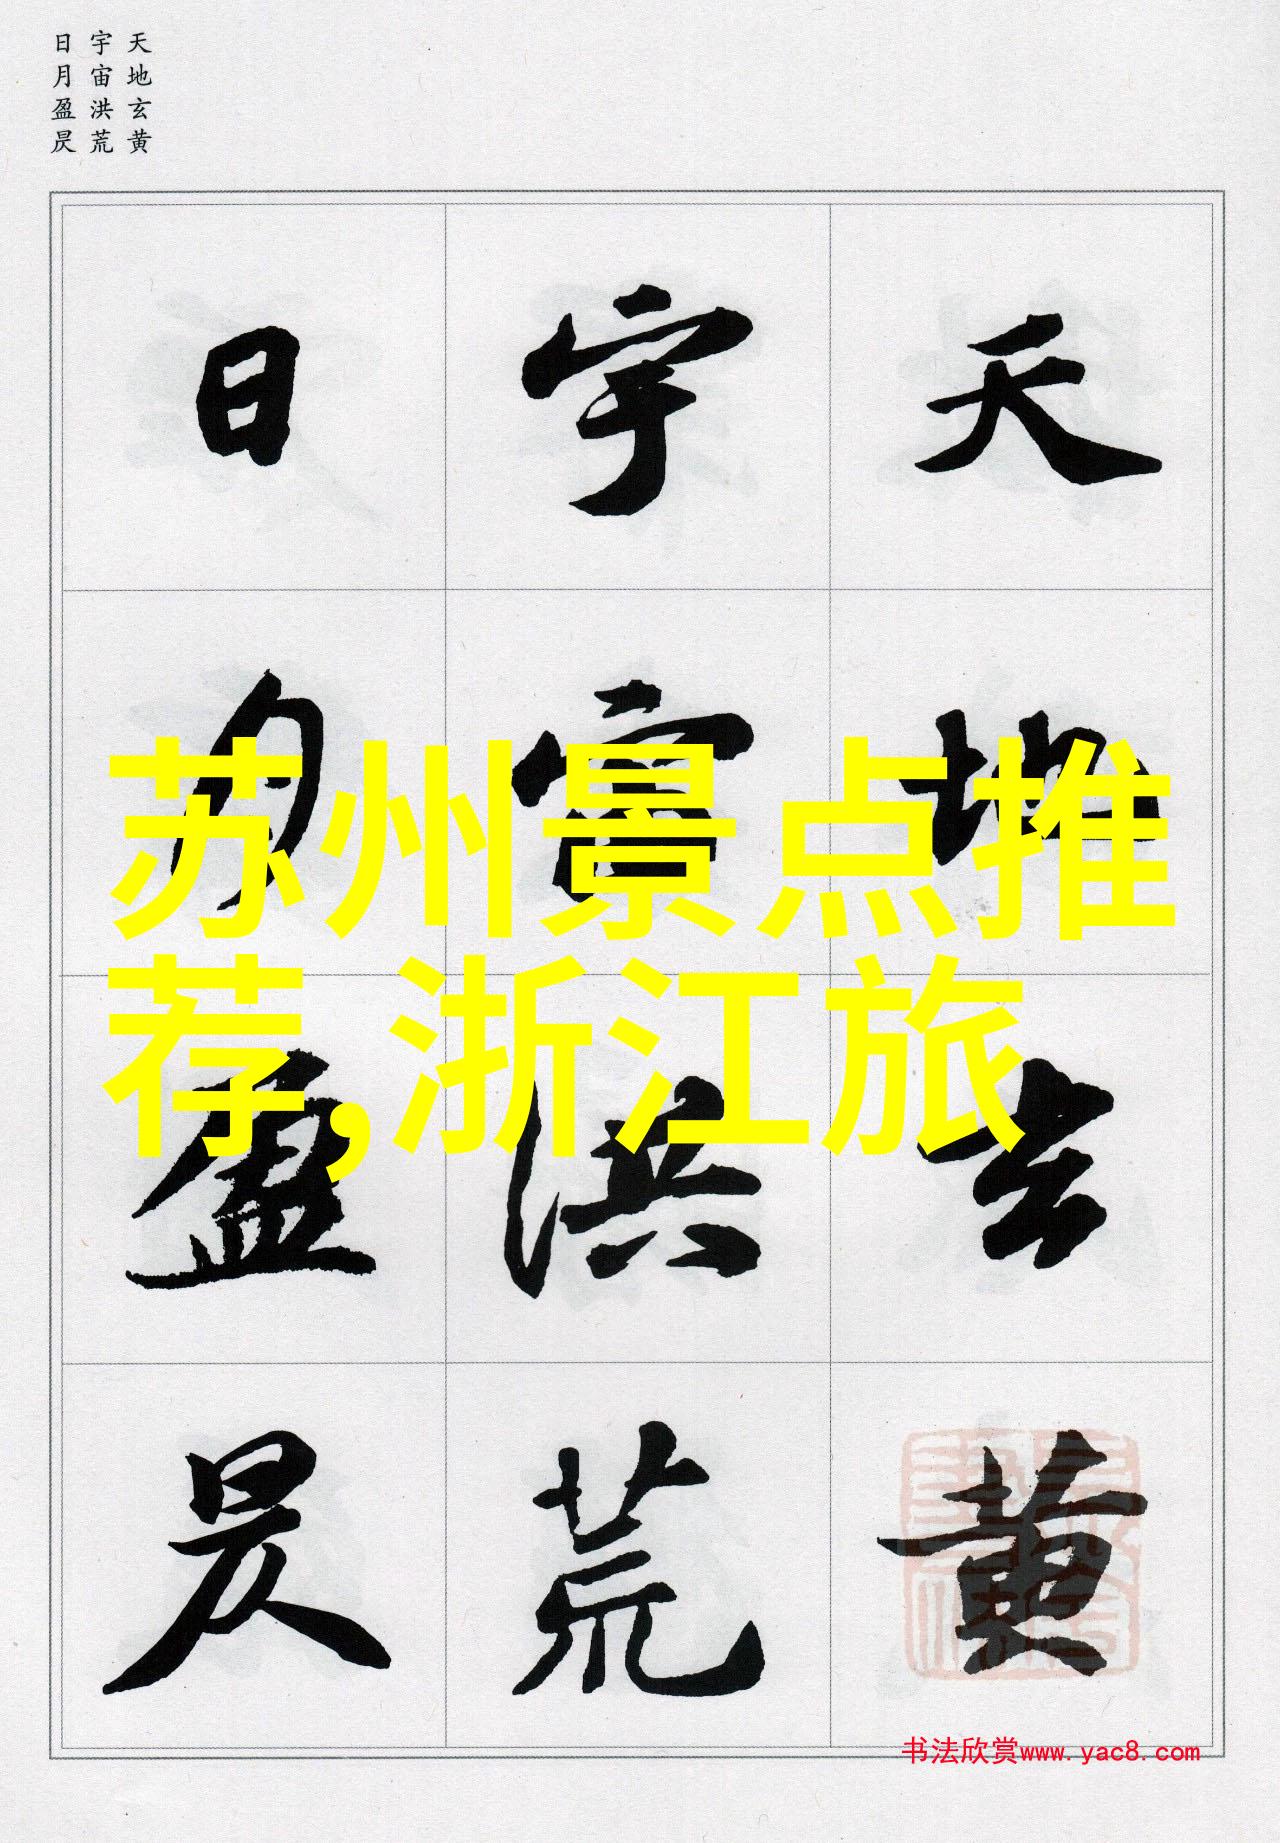 天地玄黄
宇宙洪荒
日月盈昃
天地玄黄
宇宙洪荒
日月盈昃
苏州景点推
荐,浙江旅
书法欣赏www.yac8.com